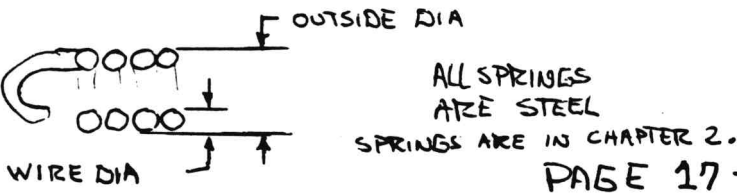 OUTSIDE DIA
ALL SPRINGS
ARE STEEL
SPRINGS ARE IN CHAPTER 2.
WIRE DIA
PAGE 17.